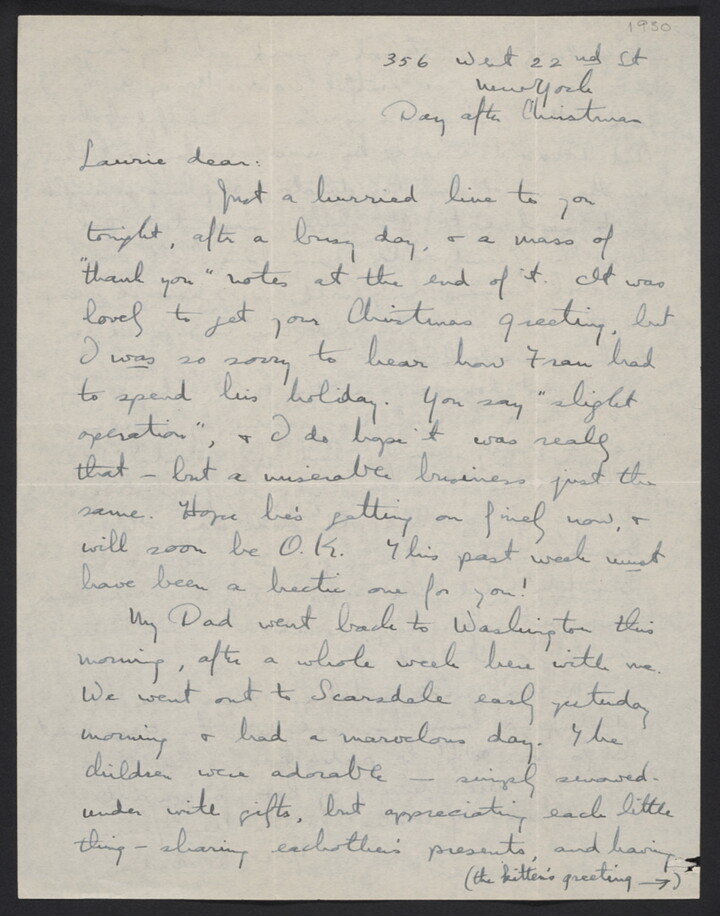 1930
356 West 22nd St
New York
Day after Christmas
Laurie dear:
Just a hurried line to you
tonight, after a busy day, & a mass of
"thank you" notes at the end of it. It was
lovely to get your Christmas greeting, but
I was so sorry to hear how Fran had
to spend his holiday. You say "slight
operation", & I do hope it was really
that – but a miserable business just the
same. Hope he's getting on finely now, &
will soon be O.K. This past week must
have been a hectic one for you!
My Dad went back to Washington this
morning, after a whole week here with me.
We went out to Scarsdale early yesterday
morning & had a marvelous day. The
children were adorable – simply snowed-
under with gifts, but appreciating each little
thing – sharing eachother's presents, and having
(the kitten's greeting →)